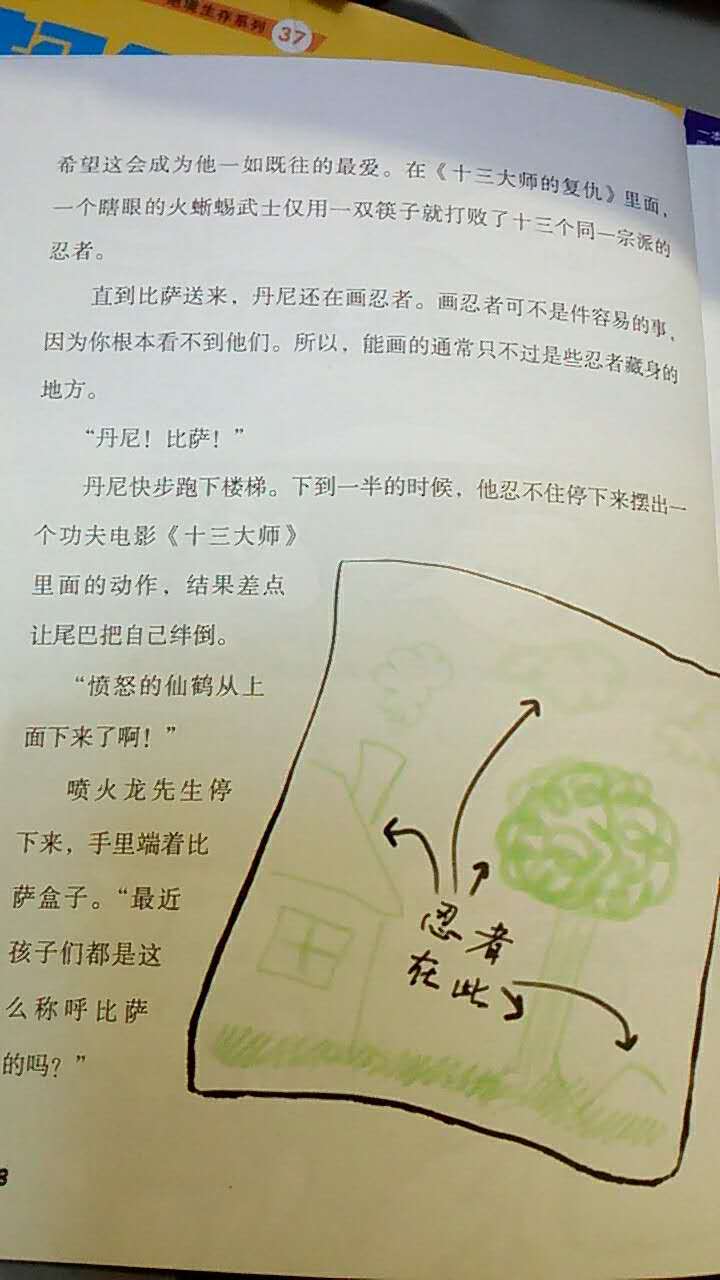 生存系列
37
希望这会成为他一如既往的最爱。在《十三大师的复仇》里面，
一个瞎眼的火蜥蜴武士仅用一双筷子就打败了十三个同一宗派的
忍者。
直到比萨送来，丹尼还在画忍者。画忍者可不是件容易的事，
因为你根本看不到他们。所以，能画的通常只不过是些忍者藏身的
地方。
“丹尼！比萨！”
丹尼快步跑下楼梯。下到一半的时候，他忍不住停下来摆出一
个功夫电影《十三大师》
里面的动作，结果差点
让尾巴把自己绊倒。
“愤怒的仙鹤从上
面下来了啊！”
喷火龙先生停
下来，手里端着比
萨盒子。“最近
孩子们都是这
么称呼比萨
的吗？”
忍者
在此